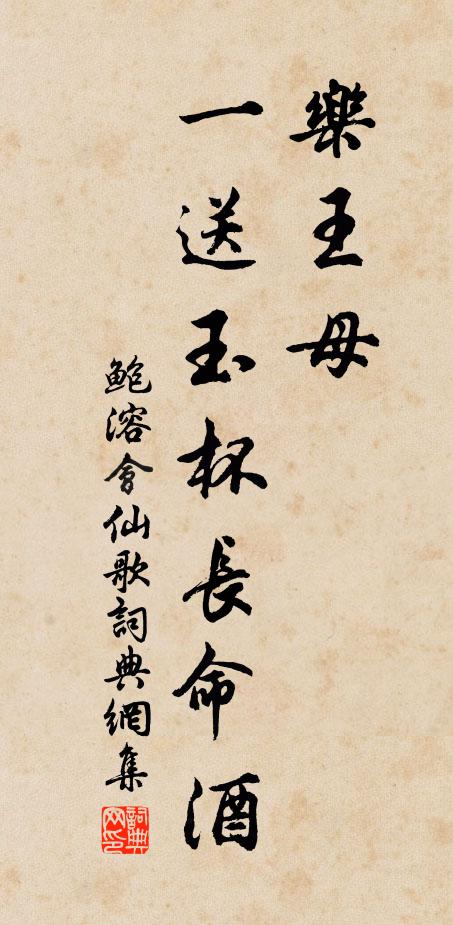 樂王母
一送玉杯長命酒
鮑溶會仙歌詞典網集
詞典
网印